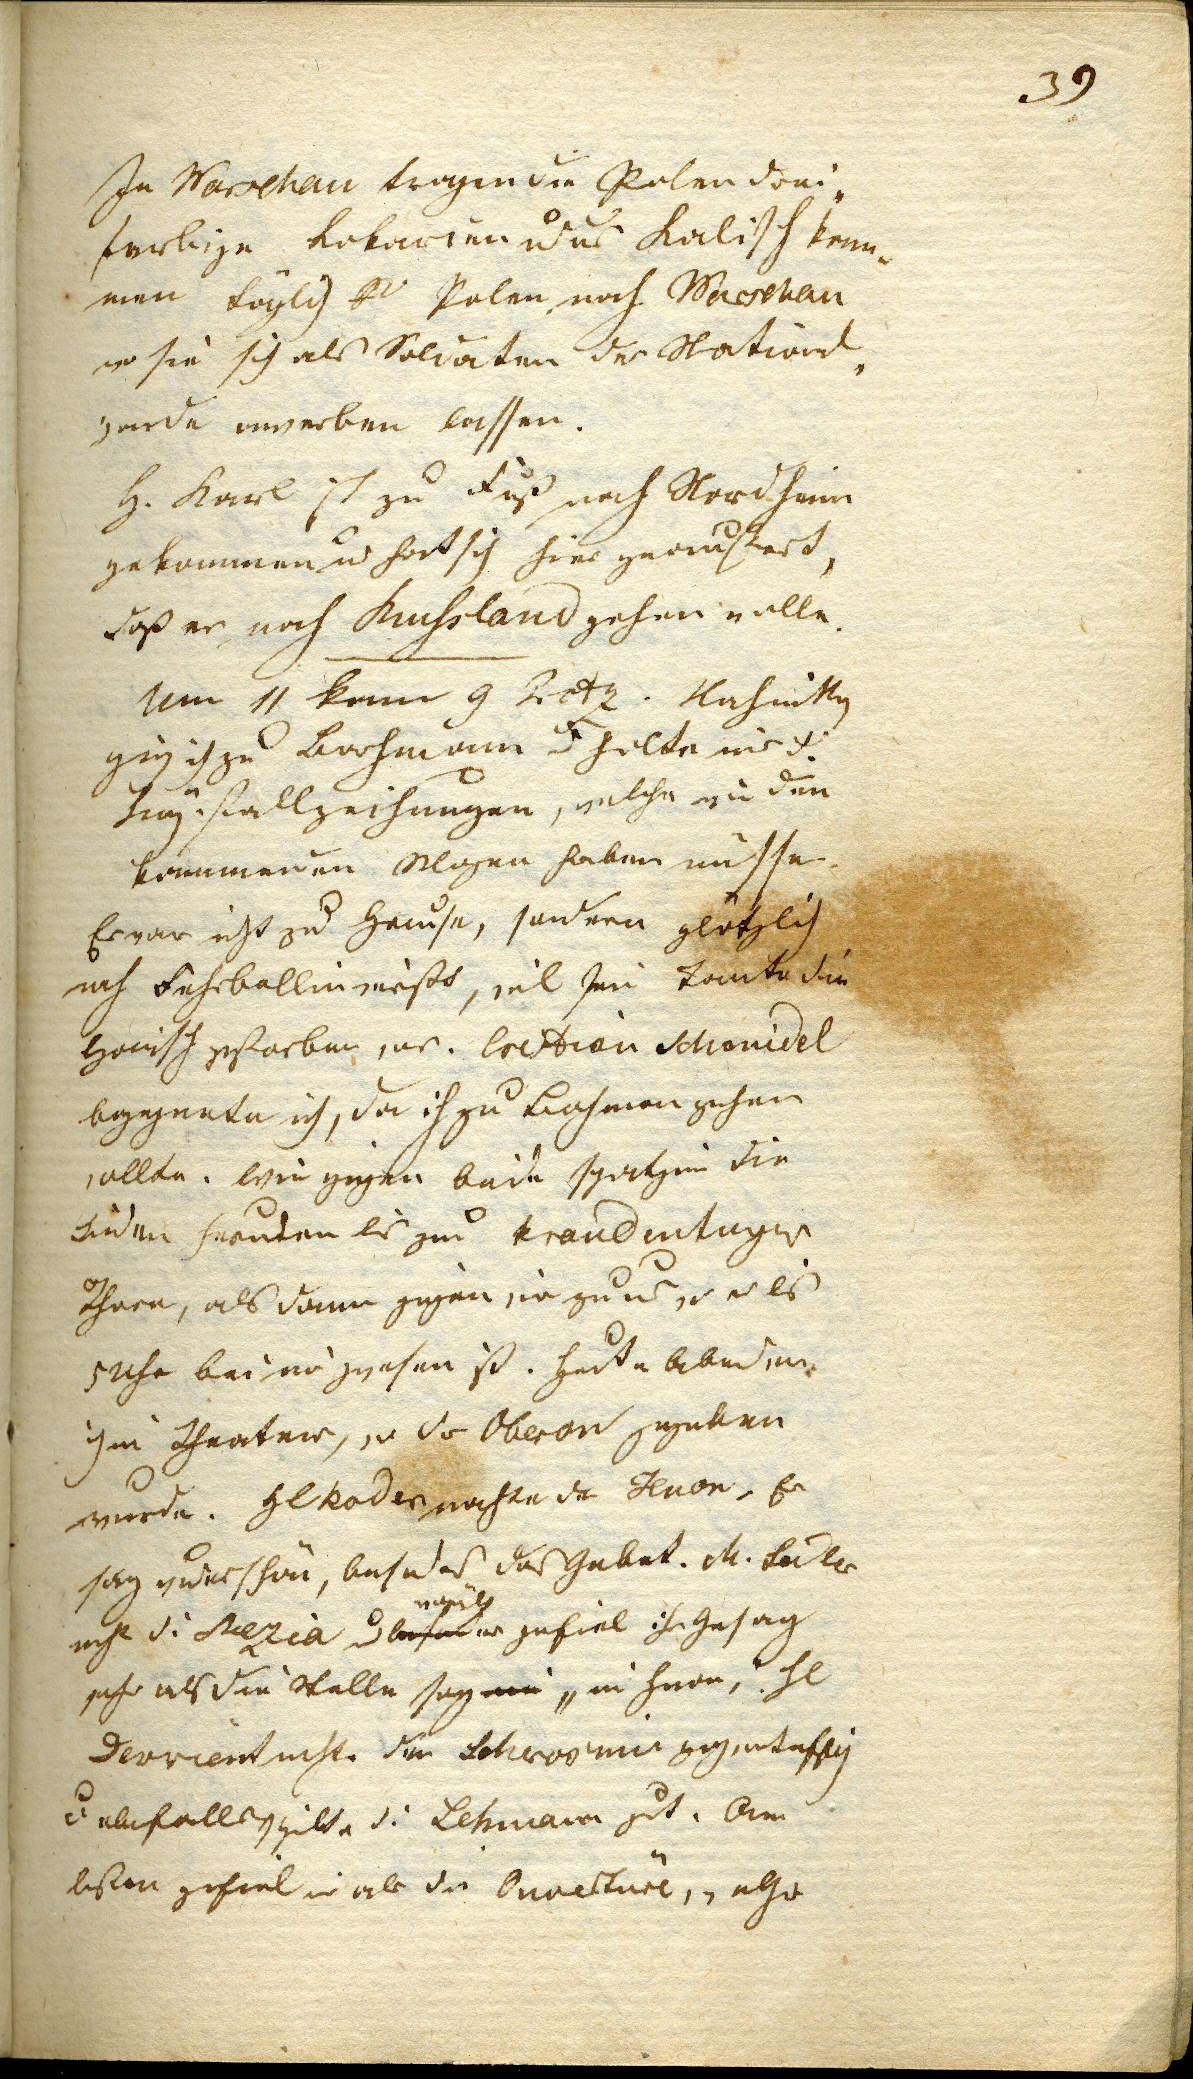 39
In Warschau tragen die Polen drei-
farbige Kokarden u aus Kalisch kom-
men täglich Polen nach Warschau
wo sie sich als Soldaten der National-
garde anwerben lassen.
H. Karl ist zu Fuß nach Nordheim
gekommen u hat sich hier geäußert,
daß er nach Russland gehen wolle.
Um 11 kam H. Nachmittag
ging ich zu Bachmann u holte mir d.
Krystallzeichnungen, welche wir den
kommenden Morgen haben müssen.
Er war nicht zu Hause, sondern plötzlich
nach Fehrbellin gereist, weil seine Tante die
gestorben war. Schmidel
begegnete ich, da ich zu Bachmann gehen
wollte. Wir gingen beide spatzieren die
Linden herunter bis zum Brandenburger
Thore, alsdann gingen wir zu uns wo er bis
5 Uhr bei mir gewesen ist. Heute Abend war
ich im Theater, wo der Oberon gegeben
wurde. H Bader machte den Huon. Er
sang wunderschön, besonders das Gebet. M. Seidler
machte die Rezia u gefiel ihr Gesang
mehr als die Stelle „mein Huon,“. H
Devrient machte den Scherasmin
u ebenfalls spielte d. Lehmann gut. Am
besten gefiel mir aber die Ouverture, welche